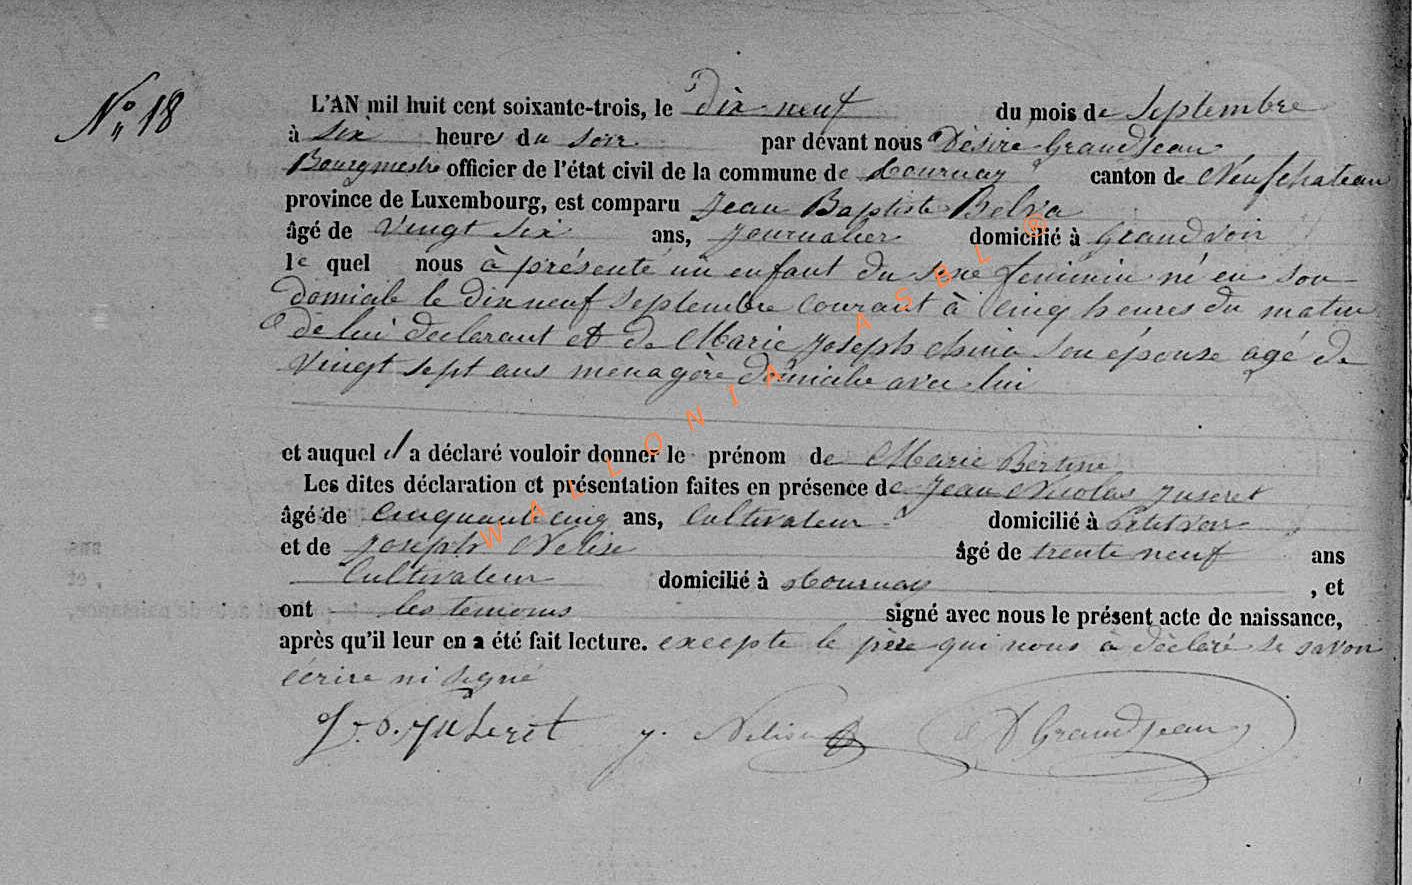 N° 18
L'AN mil huit cent soixante-trois, le dix neuf du mois de Septembre
à Six heures du soir par dévant nous Désiré Grandjean
Bourgmestre officier de l'état civil de la commune de Tournay canton de Neufchateau
province de Luxembourg, est comparu Jean Baptiste Belva
âgé de Vingt Six ans, journalier domicilié à Grandvoir
le quel nous à présenté un enfant du sexe feminin né en son
domicile le dix neuf Septembre courant à cinq heures du matin
de lui déclarant et de Marie Joseph China son épouse agé de
Vingt sept ans menagère domicilie avec lui
et auquel il a déclaré vouloir donner le prénom de Marie Bertine
Les dites déclaration et présentation faites en présence de Jean Nicolas Juseret
âgé de Cinquante cinq ans, Cultivateur domicilié à Petitvoir
et de Joseph Nelisse âgé de trente neuf ans
Cultivateur domicilié à Tournay , et
ont les temoins signé avec nous le présent acte de naissance,
après qu'il leur en a été fait lecture. excepte le père qui nous à déclaré ne savoir
écrire ni signé
J. N. Juseret J. Nelisse D Grandjean
WALLONIA ASBL ®